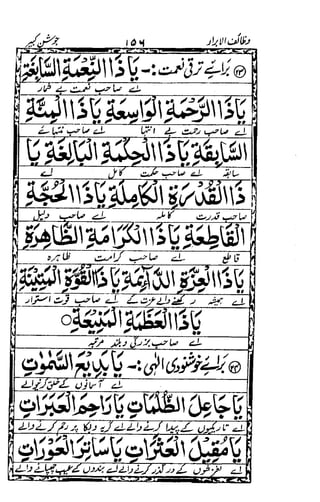 وظائف الابرار ۱۵۶ جوشن کبیر
(۲۳) برائے ترقی نعمت :- يَا ذَا النِّعْمَةِ السَّابِغَةِ
اے صاحب نعمت بے شمار
يَا ذَا الرَّحْمَةِ الْوَاسِعَةِ يَا ذَا الْمِنَّةِ
اے صاحب رحمت بے انتہا اے صاحب
السَّابِقَةِ يَا ذَا الْحِكْمَةِ الْبَالِغَةِ يَا
سابقہ اے صاحب حکمت کامل اے
ذَا الْقُدْرَةِ الْكَامِلَةِ يَا ذَا الْحُجَّةِ
صاحب قدرت کاملہ اے صاحب دلیل
الْقَاطِعَةِ يَا ذَا الْكَرَامَةِ الظَّاهِرَةِ
قاطع اے صاحب کرامت ظاہرہ
يَا ذَا الْعِزَّةِ الدَّائِمَةِ يَا ذَا الْقُوَّةِ الْمَتِيْنَةِ
اے ہمیشہ رکھنے والے عزت کے اے صاحب قوت استوار
يَا ذَا الْعَظَمَةِ الْمَنِيْعَةِ
اے صاحب بزرگی و بلند مرتبہ
(۲۴) برائے خوشنودی الٰہی :- يَا بَدِيْعَ السَّمٰوٰتِ
اے آسمانوں کے خلق کرنے والے
يَا جَاعِلَ الظُّلُمَاتِ يَا رَاحِمَ الْعَبَرَاتِ
اے تاریکیوں کے پیدا کرنے والے اے گریہ و بکا پر رحم کرنے والے
يَا مُقِيْلَ الْعَثَرَاتِ يَا سَاتِرَ الْعَوْرَاتِ
اے لغزشوں کے در گذر کرنے والے اے بندوں کے عیب چھپانے والے